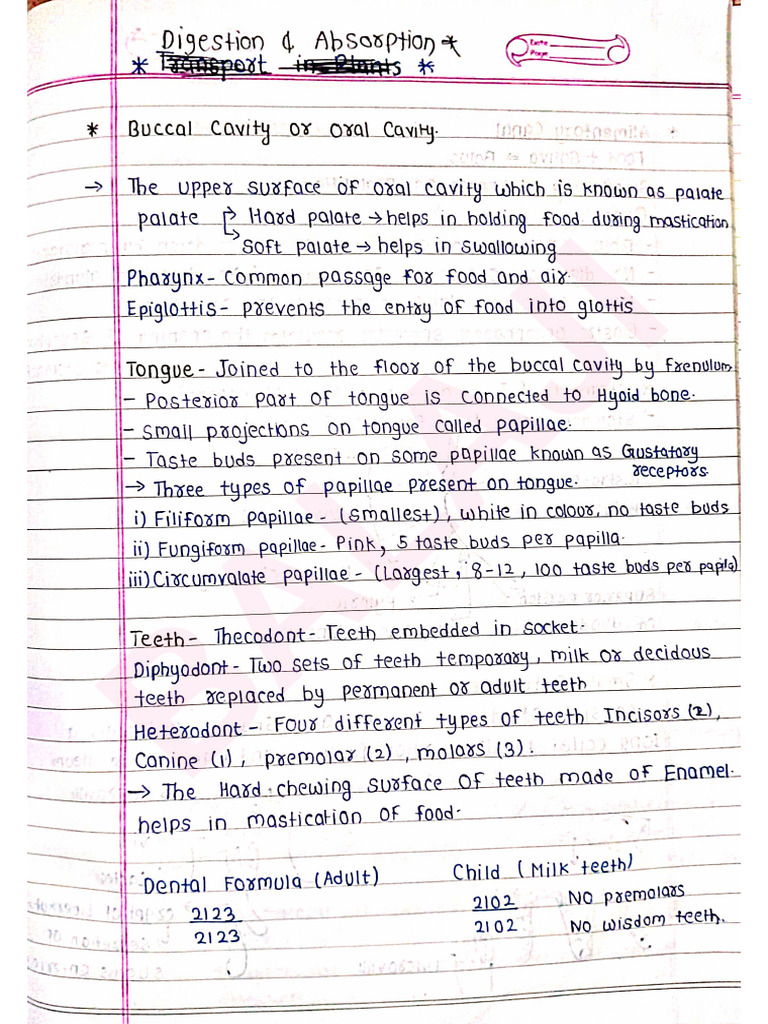 Digestion & Absorption *
* Transport in Plants *
Date
Page
* Buccal Cavity or Oral Cavity.
→ The upper surface of oral cavity which is known as palate
palate → Hard palate → helps in holding food during mastication
→ Soft palate → helps in swallowing
Pharynx - Common passage for food and air.
Epiglottis - prevents the entry of food into glottis
Tongue - Joined to the floor of the buccal cavity by Frenulum
- Posterior part of tongue is connected to Hyoid bone.
- Small projections on tongue called papillae.
- Taste buds present on some papillae known as Gustatory
receptors.
→ Three types of papillae present on tongue.
i) Filiform papillae - (smallest), white in colour, no taste buds
ii) Fungiform papillae - Pink, 5 taste buds per papilla.
iii) Circumvalate papillae - (Largest, 8-12, 100 taste buds per papila)
Teeth - Thecodont - Teeth embedded in socket.
Diphyodont - Two sets of teeth temporary, milk or decidous
teeth replaced by permanent or adult teeth
Heterodont - Four different types of teeth Incisors (2),
Canine (1), premolar (2), molars (3).
→ The Hard chewing surface of teeth made of Enamel.
helps in mastication of food.
Dental Formula (Adult) Child (Milk teeth)
2123 2102 No premolars
2123 2102 No wisdom teeth.
BALAJI